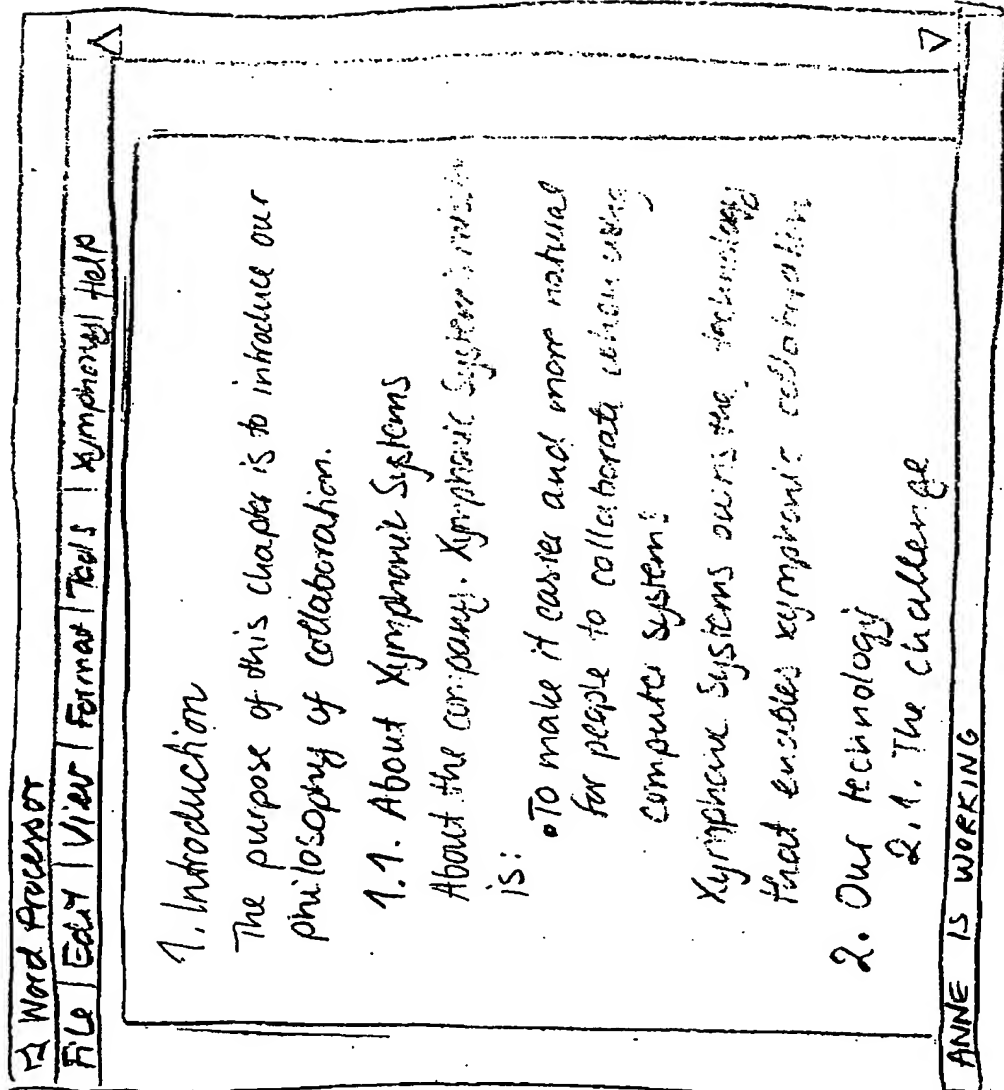 Word Processor
File | Edit | View | Format | Tools | Xymphony | Help
1. Introduction
The purpose of this chapter is to introduce our
philosophy of collaboration.
1.1. About Xymphonic Systems
About the company. Xymphonic System's vision
is:
•To make it easier and more natural
for people to collaborate when using
computer systems
Xymphonic Systems owns the technology
that enables xymphonic collaboration
2. Our technology
2.1. The challenge
ANNE IS WORKING